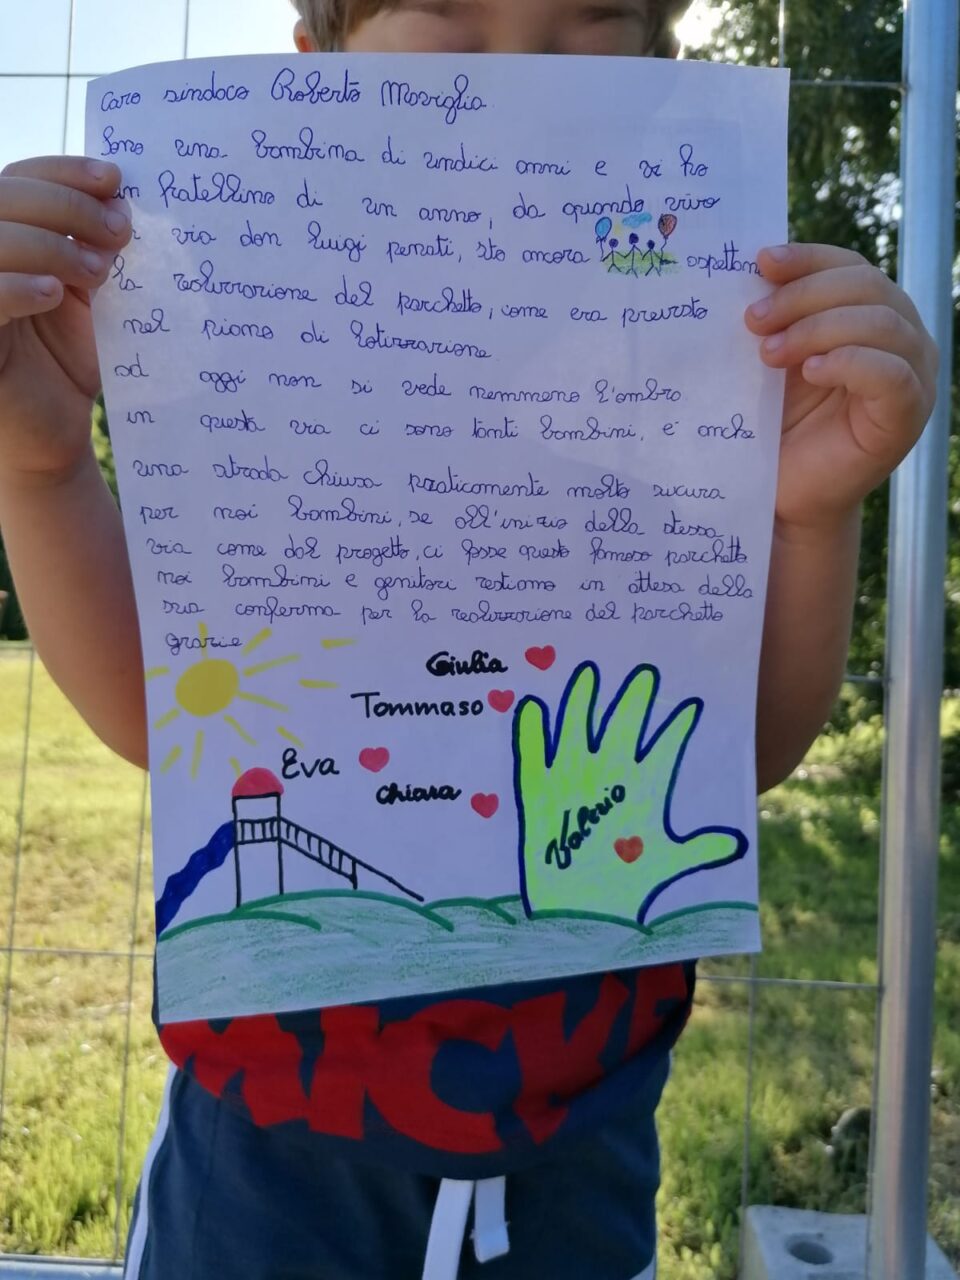 Caro sindoco Roberto Moviglia
Sono una bambina di undici anni e vi ho
un fratellino di un anno, da quando vivo
via don luigi penati, sto ancora aspettan
la realizzazione del parchetto, come era previsto
nel piano di lotizzazione.
ad oggi non si vede nemmeno l'ombra.
in questa via ci sono tanti bambini, e' anche
una strada chiusa praticamente molto sicura
per noi bambini, se all'inizio della stessa
via come dal progetto, ci fosse questo famoso parchetto
noi bambini e genitori restiamo in attesa della
sua conferma per la realizzazione del parchetto
grazie
Giulia
Tommaso
Eva
Chiara
Valerio
MICKE